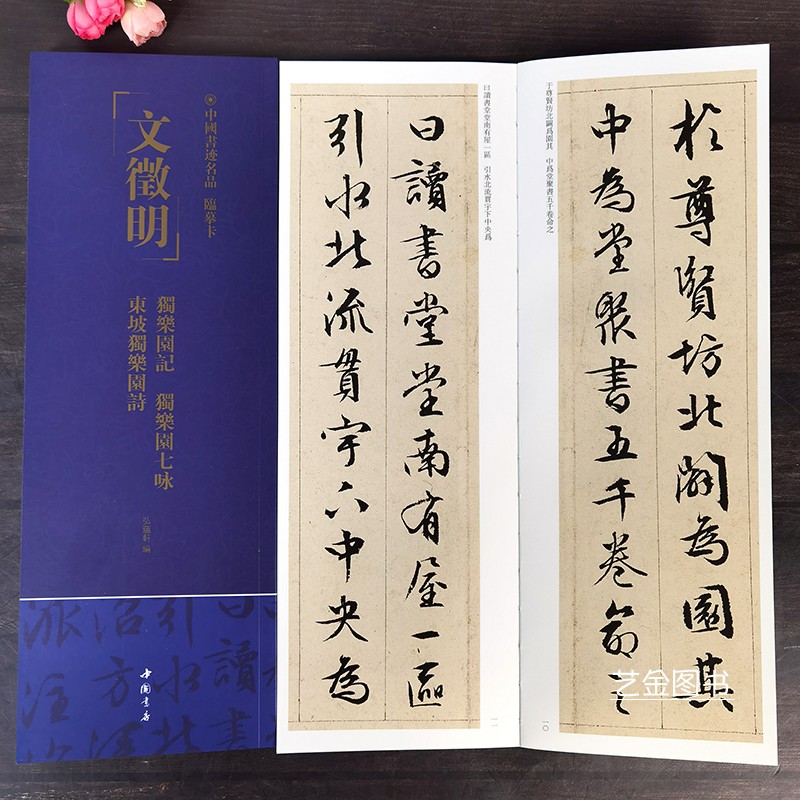 中國書迹名品 臨摹卡
「文徵明」
獨樂園記 獨樂園七咏
東坡獨樂園詩
弘蘊軒 編
中国書店
於尊賢坊北闢為園其
中為堂聚書五千卷命之
于尊賢坊北闢爲園其 中爲堂聚書五千卷命之
一〇
曰讀書堂堂南有屋一區
引水北流貫宇下中央為
曰讀書堂堂南有屋一區 引水北流貫宇下中央爲
一一
艺金图书